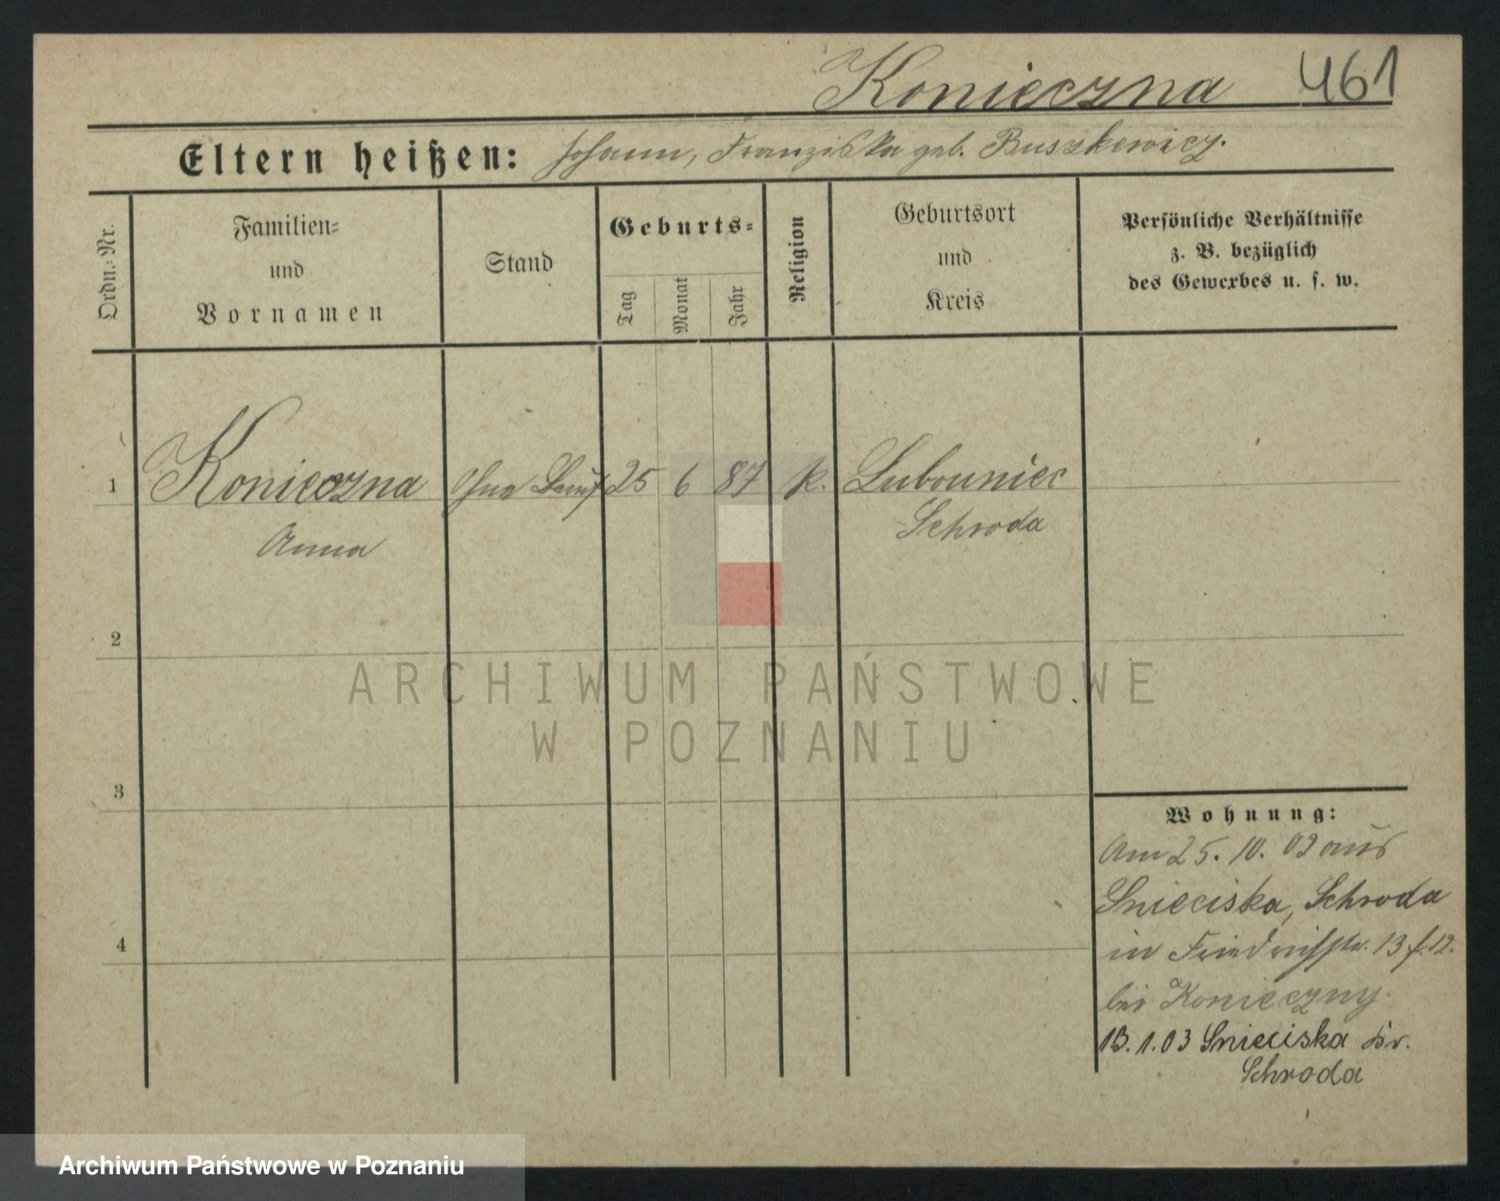 Konieczna 461
Eltern heißen: Johann, Franziska geb. Buszkewicz.
Ordn.-Nr.
Familien-
und
Vornamen
Stand
Geburts-
Tag
Monat
Jahr
Religion
Geburtsort
und
Kreis
Persönliche Verhältnisse
z. B. bezüglich
des Gewerbes u. s. w.
1 Konieczna ohne Beruf 25 6 87 k. Lubouniec
Anna Schroda
2
ARCHIWUM PAŃSTWOWE
W POZNANIU
3
Wohnung:
Am 25. 10. 02 aus
Snieciska, Schroda
in Friedrichstr. 13 f. 12.
bei Konieczny.
13. 1. 03 Snieciska Kr.
Schroda
4
Archiwum Państwowe w Poznaniu